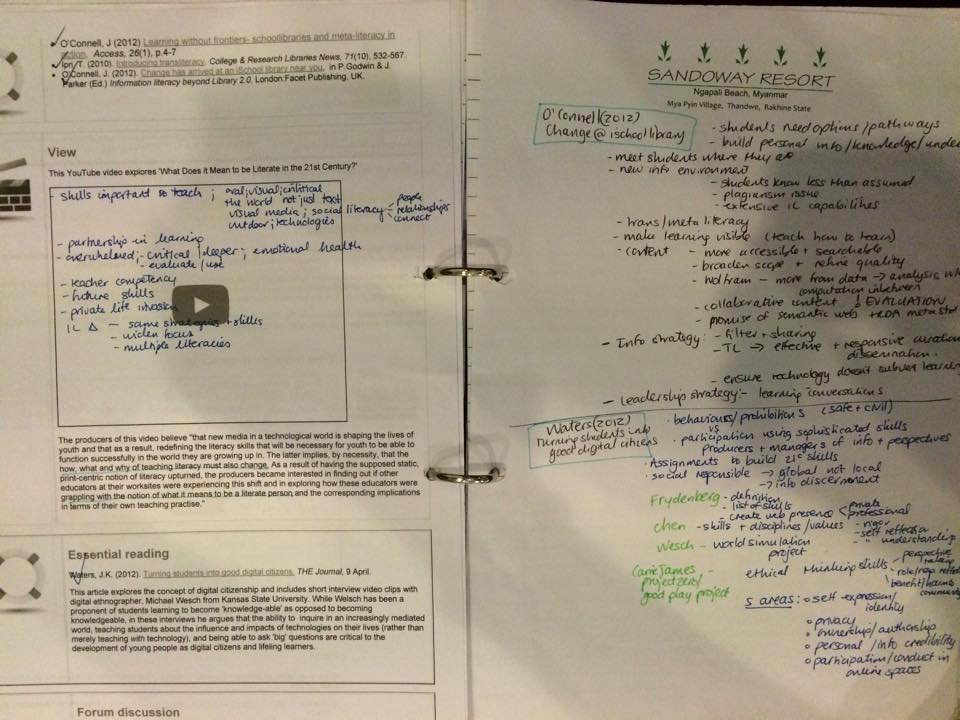 O'Connell, J (2012) Learning without frontiers- schoollibraries and meta-literacy in
action. Access, 26(1), p.4-7
Ipri, T. (2010). Introducing transliteracy. College & Research Libraries News, 71(10), 532-567.
O'Connell, J. (2012). Change has arrived at an iSchool library near you, in P.Godwin & J.
Parker (Ed.) Information literacy beyond Library 2.0. London:Facet Publishing, UK.
View
This YouTube video explores 'What Does it Mean to be Literate in the 21st Century?'
- skills important to teach ; oral; visual; critical
the world not just text
visual media ; social literacy
outdoor; technologies
people
relationships
connect
- partnership in learning
- overwhelmed; - critical / deeper ; emotional health
- evaluate / use
- teacher competency
- future skills
- private life invasion
IL Δ - same strategies + skills
- widen focus
- multiple literacies
The producers of this video believe "that new media in a technological world is shaping the lives of
youth and that as a result, redefining the literacy skills that will be necessary for youth to be able to
function successfully in the world they are growing up in. The latter implies, by necessity, that the
how, what and why of teaching literacy must also change. As a result of having the supposed static,
print-centric notion of literacy upturned, the producers became interested in finding out if other
educators at their worksites were experiencing this shift and in exploring how these educators were
grappling with the notion of what it means to be a literate person and the corresponding implications
in terms of their own teaching practise."
Essential reading
Waters, J.K. (2012). Turning students into good digital citizens. THE Journal, 9 April.
This article explores the concept of digital citizenship and includes short interview video clips with
digital ethnographer, Michael Wesch from Kansas State University. While Welsch has been a
proponent of students learning to become 'knowledge-able' as opposed to becoming
knowledgeable, in these interviews he argues that the ability to inquire in an increasingly mediated
world, teaching students about the influence and impacts of technologies on their lives (rather than
merely teaching with technology), and being able to ask 'big' questions are critical to the
development of young people as digital citizens and lifeling learners.
Forum discussion
SANDOWAY RESORT
Ngapali Beach, Myanmar
Mya Pyin Village, Thandwe, Rakhine State
O'Connell (2012)
Change @ ischool library
- students need options / pathways
- build personal info / knowledge /
- meet students where they are
- new info environment
- students know less than assumed
- plagiarism issue
- extensive IL capabilities
- trans/meta literacy
- make learning visible (teach how to learn)
- content - more accessible + searchable
- broaden scope + refine quality
- Wolfram - more from data → analysis
computation inbetween
- collaborative content ! EVALUATION
- promise of semantic web + RDA
- Info strategy: - filter + sharing
- TL → effective + responsive curation
dissemination.
- ensure technology doesn't subvert
- Leadership strategy:- learning conversations
Waters (2012)
Turning students into
good digital citizens
· behaviours/prohibitions (safe + civil)
vs
· participation using sophisticated skills
producers + managers of info + perspectives
· Assignments to build 21c skills
· social responsible → global not local
→ info discernment
Frydenberg - definition
- list of skills
- create web presence < private
professional
Chen - skills + disciplines / values - rigor
- self reflection
- " understanding
Wesch - world simulation
project
Carrie James -
project zero/
good play project
ethical thinking skills
- perspective
taking
5 areas: o self expression/
identity
o privacy
o ownership / authorship
o personal / info credibility
o participation / conduct in
online spaces